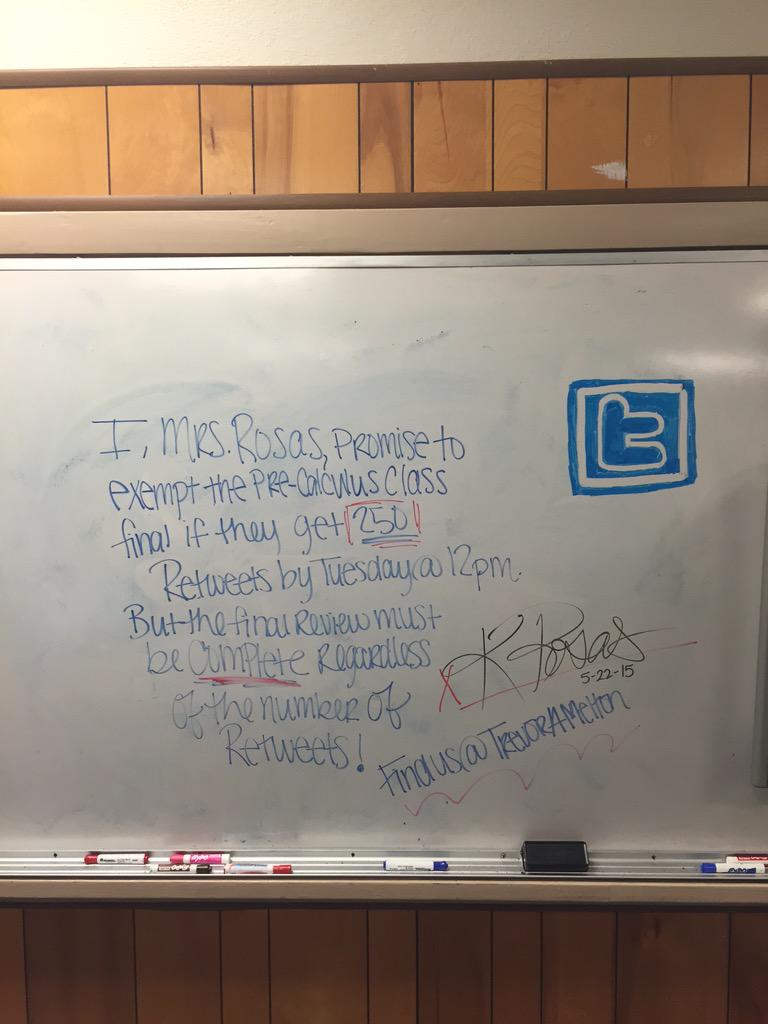 I, MRS. ROSAS, PROMISE to
exempt the PRE-Calculus Class
final if they get 250
Retweets by Tuesday @ 12pm.
But the final Review must
be COMPLETE Regardless
of the number of
Retweets!
t
X K Rosas
5-22-15
Find us @ TREVORAMelton
EXPO